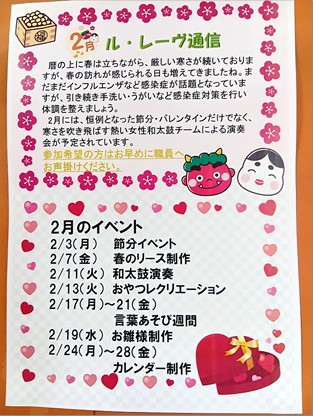 2月
ル・レーヴ通信
暦の上に春は立ちながら、厳しい寒さが続いておりま
すが、春の訪れが感じられる日も増えてきましたね。ま
だまだインフルエンザなど感染症が話題となっていま
すが、引き続き手洗いうがいなど感染症対策を行い
体調を整えましょう。
2月には、恒例となった節分・バレンタインだけでなく、
寒さを吹き飛ばす熱い女性和太鼓チームによる演奏
会が予定されています。
参加希望の方はお早めに職員へ
お声掛けください。
2月のイベント
2/3(月) 節分イベント
2/7(金) 春のリース制作
2/11(火) 和太鼓演奏
2/13(火) おやつレクリエーション
2/17(月)~21(金)
言葉あそび週間
2/19(水) お雛様制作
2/24(月)~28(金)
カレンダー制作